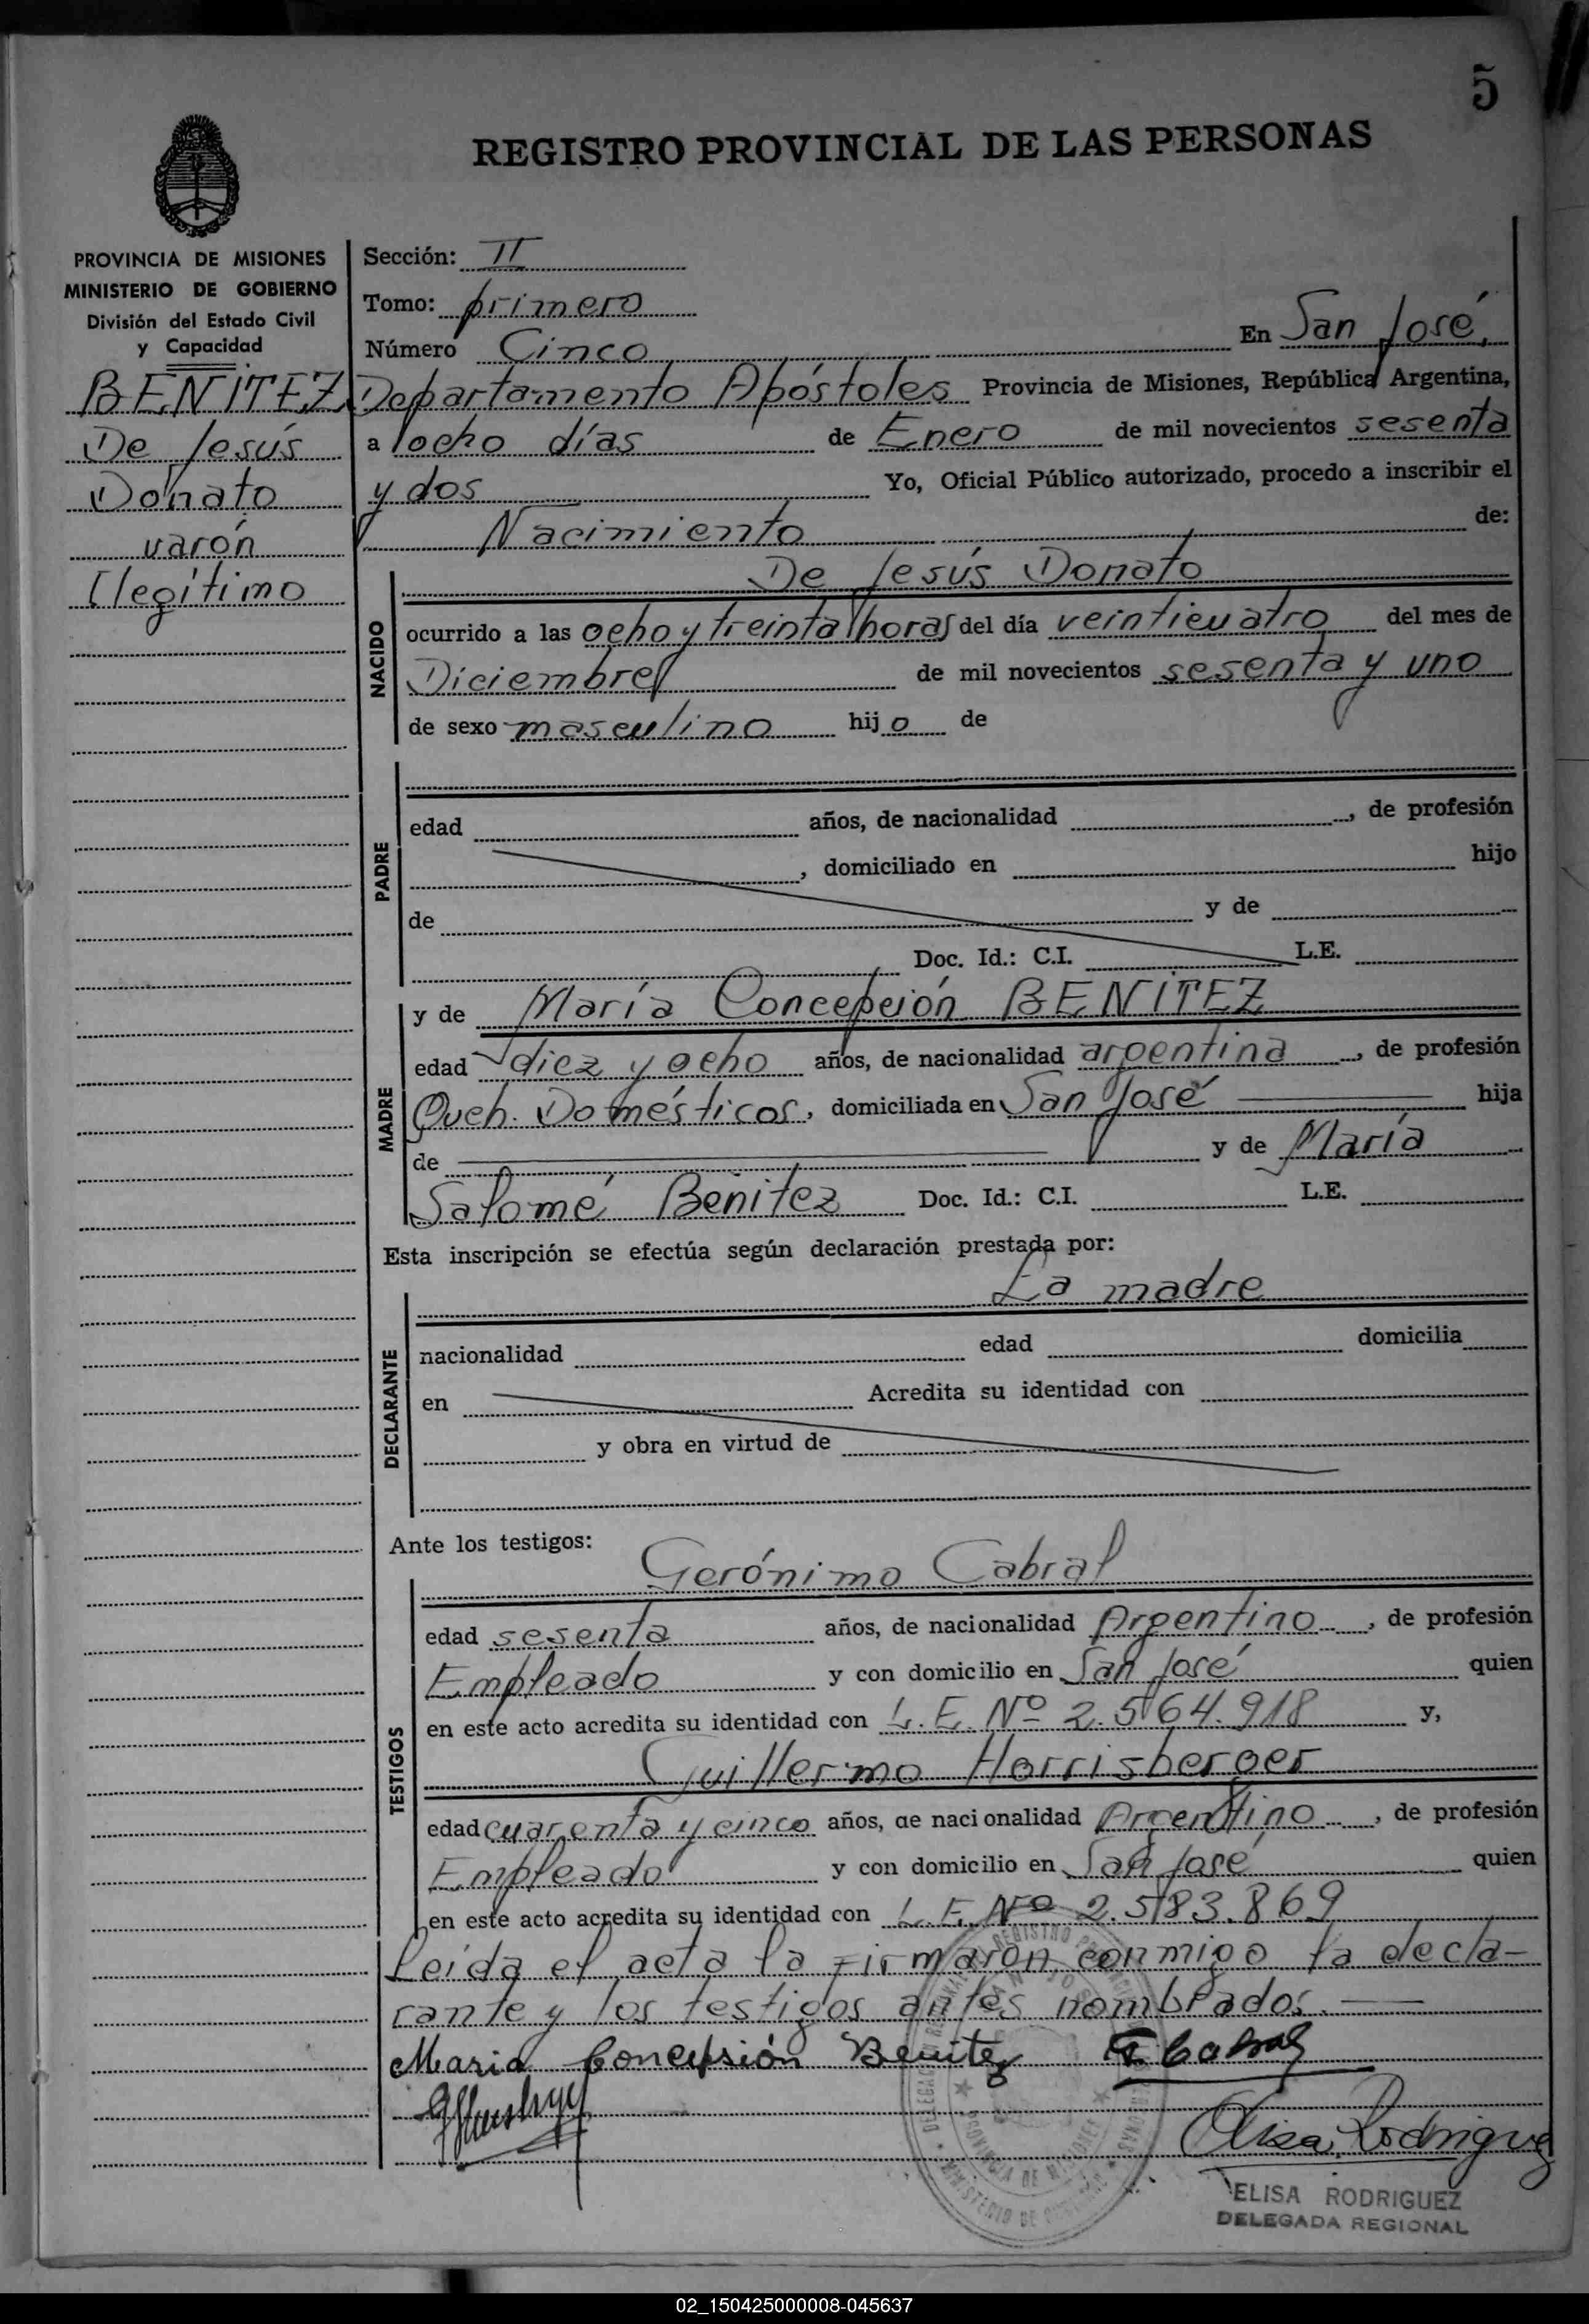 5
REGISTRO PROVINCIAL DE LAS PERSONAS
PROVINCIA DE MISIONES
MINISTERIO DE GOBIERNO
División del Estado Civil
y Capacidad
BENITEZ
De Jesús
Donato
varón
Ilegítimo
Sección: II
Tomo: primero
Número Cinco En San José,
Departamento Apóstoles Provincia de Misiones, República Argentina,
a ocho días de Enero de mil novecientos sesenta
y dos Yo, Oficial Público autorizado, procedo a inscribir el
Nacimiento de:
NACIDO
De Jesús Donato
ocurrido a las ocho y treinta horas del día veinticuatro del mes de
Diciembre de mil novecientos sesenta y uno
de sexo masculino hijo de
PADRE
edad años, de nacionalidad , de profesión
, domiciliado en hijo
de y de
Doc. Id.: C.I. L.E.
MADRE
y de María Concepción BENITEZ
edad diez y ocho años, de nacionalidad argentina , de profesión
Queh. Domésticos, domiciliada en San José hija
de y de María
Salomé Benitez Doc. Id.: C.I. L.E.
Esta inscripción se efectúa según declaración prestada por:
DECLARANTE
La madre
nacionalidad edad domicilia
en Acredita su identidad con
y obra en virtud de
Ante los testigos:
TESTIGOS
Gerónimo Cabral
edad sesenta años, de nacionalidad Argentino , de profesión
Empleado y con domicilio en San José quien
en este acto acredita su identidad con L.E. Nº 2.564.918 y,
Guillermo Horrisberger
edad cuarenta y cinco años, de nacionalidad Argentino , de profesión
Empleado y con domicilio en San José quien
en este acto acredita su identidad con L.E. Nº 2.583.869
Leída el acta la firmaron conmigo la decla-
rante y los testigos antes nombrados.
Maria Concepsión Benitez G. Cabral
Elisa Rodriguez
ELISA RODRIGUEZ
DELEGADA REGIONAL
02_150425000008-045637